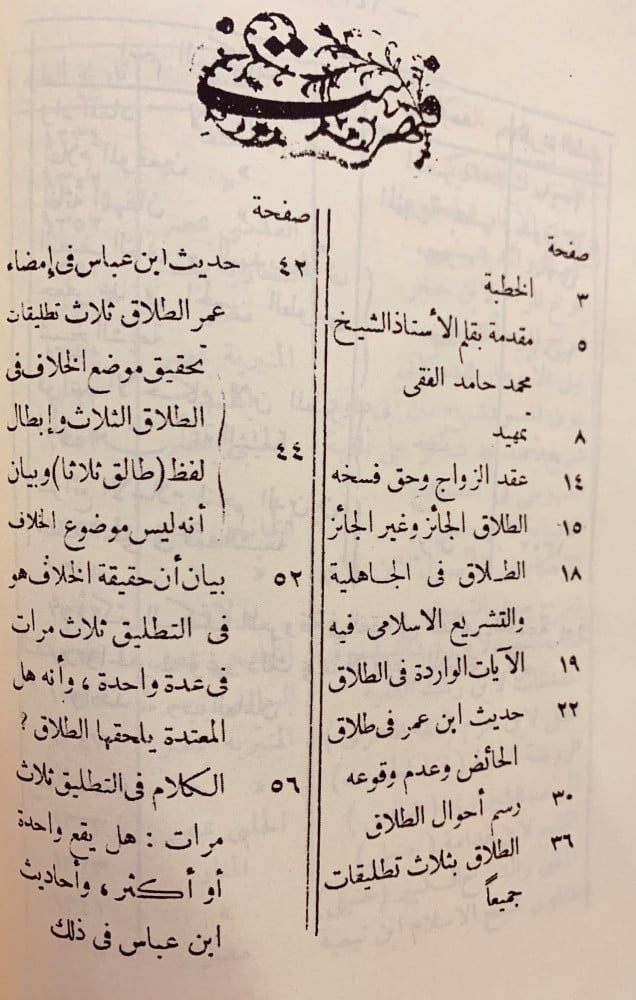 فهرست
صفحة
٣ الخطبة
٥ مقدمة بقلم الأستاذ الشيخ
محمد حامد الفقى
٨ تمهيد
١٤ عقد الزواج وحق فسخه
١٥ الطلاق الجائز وغير الجائز
١٨ الطلاق فى الجاهلية
والتشريع الاسلامى فيه
١٩ الآيات الواردة فى الطلاق
٢٢ حديث ابن عمر فى طلاق
الحائض وعدم وقوعه
٣٠ رسم أحوال الطلاق
٣٦ الطلاق بثلاث تطليقات
جميعاً
صفحة
٤٢ حديث ابن عباس فى إمضاء
عمر الطلاق ثلاث تطليقات
تحقيق موضع الخلاف فى
الطلاق الثلاث وإبطال
٤٤ لفظ (طالق ثلاثا) وبيان
أنه ليس موضوع الخلاف
٥٢ بيان أن حقيقة الخلاف هو
فى التطليق ثلاث مرات
فى عدة واحدة ، وأنه هل
المعتدة يلحقها الطلاق ؟
٥٦ الكلام فى التطليق ثلاث
مرات : هل يقع واحدة
أو أكثر ، وأحاديث
ابن عباس فى ذلك